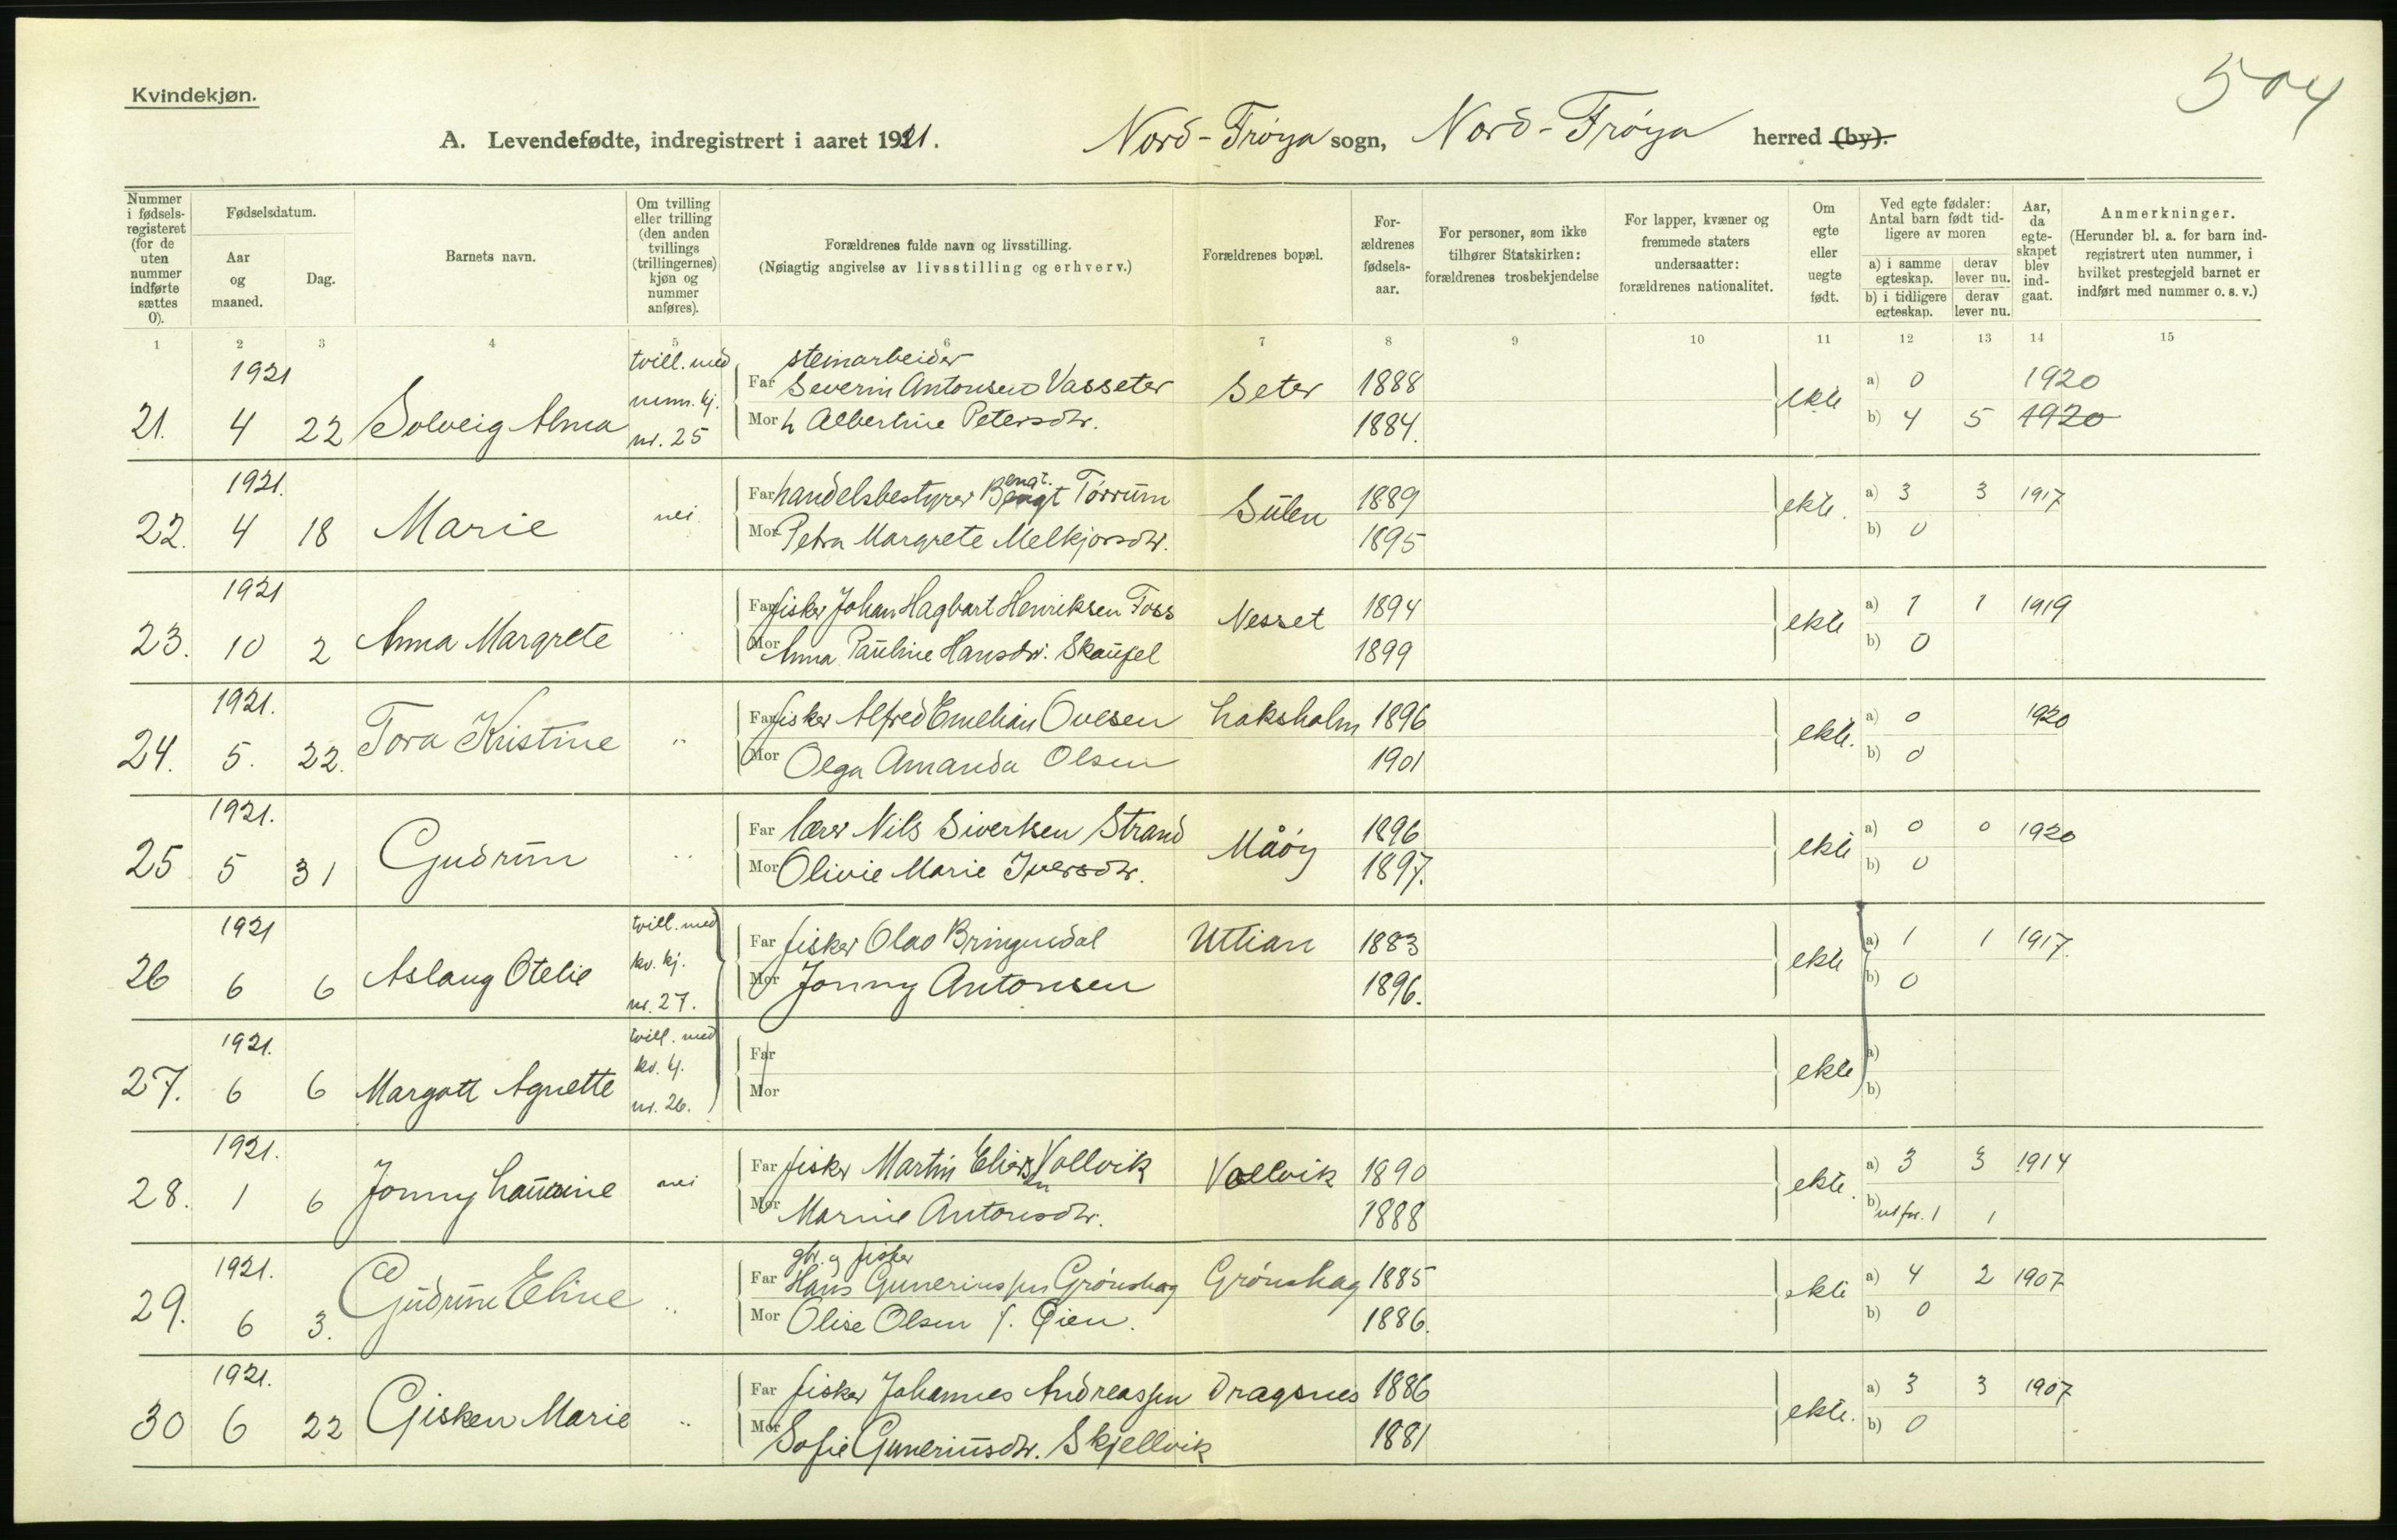 504
Kvindekjøn.
A. Levendefødte, indregistrert i aaret 1921. Nord-Frøya sogn, Nord-Frøya herred (by).
Nummer i fødsels-registeret (for de uten nummer indførte sættes 0).
Fødselsdatum.
Aar og maaned.
Dag.
Barnets navn.
Om tvilling eller trilling (den anden tvillings (trillingernes) kjøn og nummer anføres).
Forældrenes fulde navn og livsstilling.
(Nøiagtig angivelse av livsstilling og erhverv.)
Forældrenes bopæl.
For-ældrenes fødsels-aar.
For personer, som ikke tilhører Statskirken: forældrenes trosbekjendelse
For lapper, kvæner og fremmede staters undersaatter: forældrenes nationalitet.
Om egte eller uegte født.
Ved egte fødsler: Antal barn født tid-ligere av moren
a) i samme egteskap. derav lever nu.
b) i tidligere egteskap. derav lever nu.
Aar, da egte-skapet blev ind-gaat.
Anmerkninger.
(Herunder bl. a. for barn ind-registrert uten nummer, i hvilket prestegjeld barnet er indført med nummer o. s. v.)
1 2 3 4 5 6 7 8 9 10 11 12 13 14 15
1921 tvill. med steinarbeider
Far Severin Antonsen Vasseter Seter 1888 ekte a) 0 1920
21. 4 22 Solveig Alma mnn. kj. nr. 25
Mor h Albertine Petersdtr. 1884. b) 4 5 1920
1921. Far handelsbestyrer Bengt Tørrum Sulen 1889 ekte. a) 3 3 1917
22. 4 18 Marie nei
Mor Petra Margrete Melkjorsdtr. 1895 b) 0
1921 Far fisker Johan Hagbart Henriksen Foss Nesset 1894 ekte a) 1 1 1919
23. 10 2 Anna Margrete "
Mor Anna Pauline Hansdtr. Skaufel 1899 b) 0
1921. Far fisker Alfred Emelian Ovesen Laksholm 1896 ekte. a) 0 1920
24. 5. 22. Tora Kristine "
Mor Olga Amanda Olsen 1901 b) 0
1921. Far lærer Nils Sivertsen Strand Måøy 1896 ekte a) 0 0 1920
25 5 31 Gudrun "
Mor Olivie Marie Iversdtr. 1897. b) 0
1921 tvill. med Far fisker Olao Bringsdal Uttian 1883 ekte a) 1 1 1917.
26 6 6 Aslaug Otelie kv. kj. nr. 27.
Mor Jonny Antonsen 1896. b) 0
1921. tvill. med Far ekte a)
27. 6 6 Margott Agnette kv. kj. nr. 26.
Mor b)
1921. Far fisker Martin Eliersen Vollvik Vollvik 1890 ekte. a) 3 3 1914
28. 1 6 Jonny nei
Mor Marine Antonsdtr. 1888 b) 1 1
1921. gbr. og fisker
Far Hans Guneriussen Grønshag Grønshag 1885 ekte a) 4 2 1907
29. 6 3. Gudrun Eline "
Mor Olise Olsen f. Øien. 1886. b) 0
1921. Far fisker Johannes Andreassen Dragsnes 1886 ekte. a) 3 3 1907
30 6 22 Gisken Marie "
Mor Sofie Guneriusdtr. Skjellvik 1881 b) 0